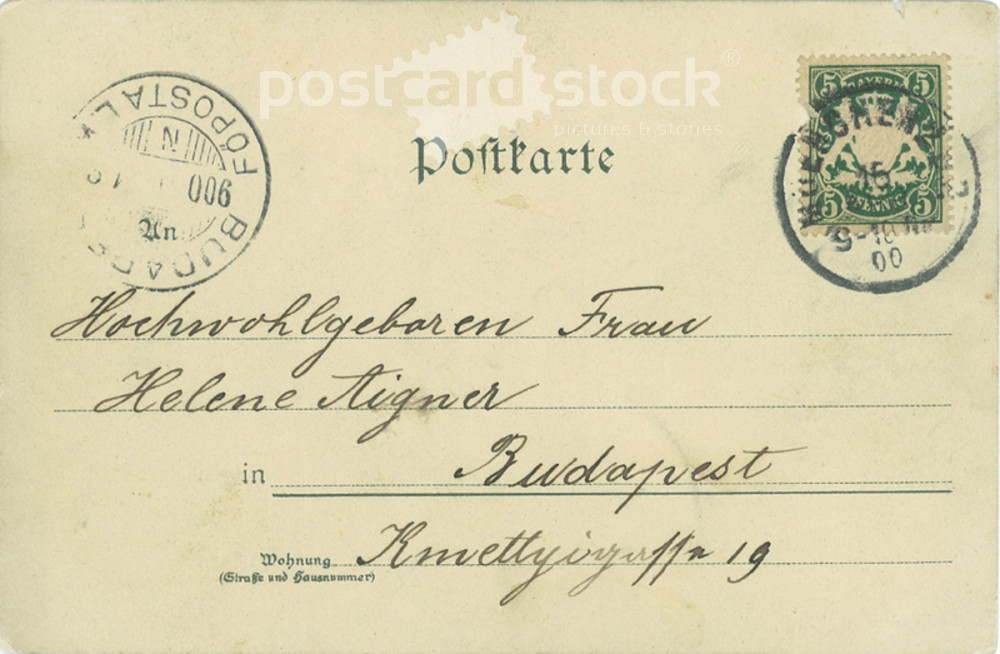 postcard stock®
pictures & stories
Postkarte
BAYERN
5 5
PFENNIG
5 5
15
00
BUDAPEST FŐPOSTA
900
N
An
Hochwohlgeboren Frau
Helene Aigner
in Budapest
Wohnung
(Straße und Hausnummer)
Kmettyigasse 19